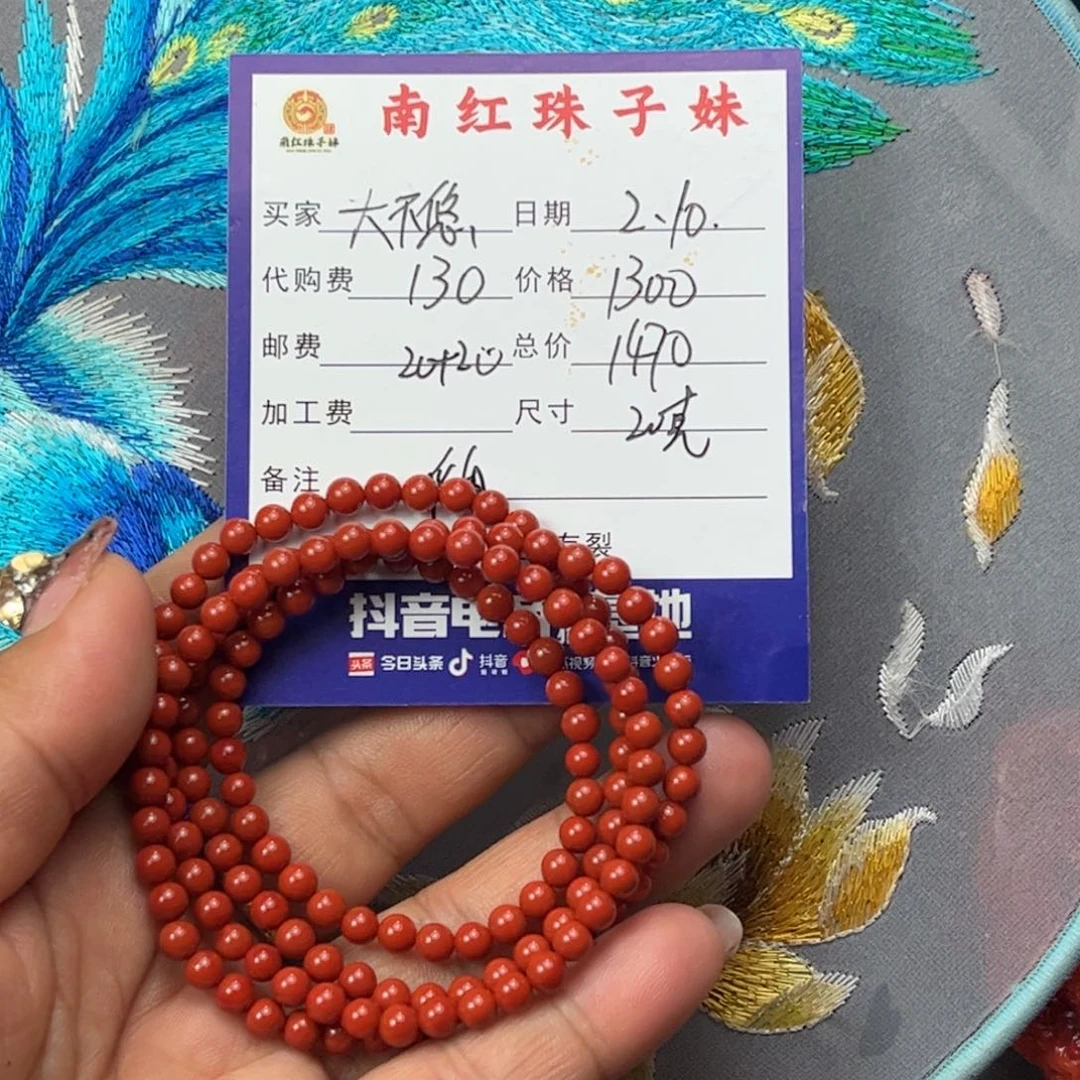 南红珠子妹
南红珠子妹
买家 大不悠、 日期 2.10.
代购费 130 价格 1300
邮费 20+20 总价 1470
加工费 尺寸 20克
备注
有裂
抖音电 基地
头条 今日头条 抖音 视频